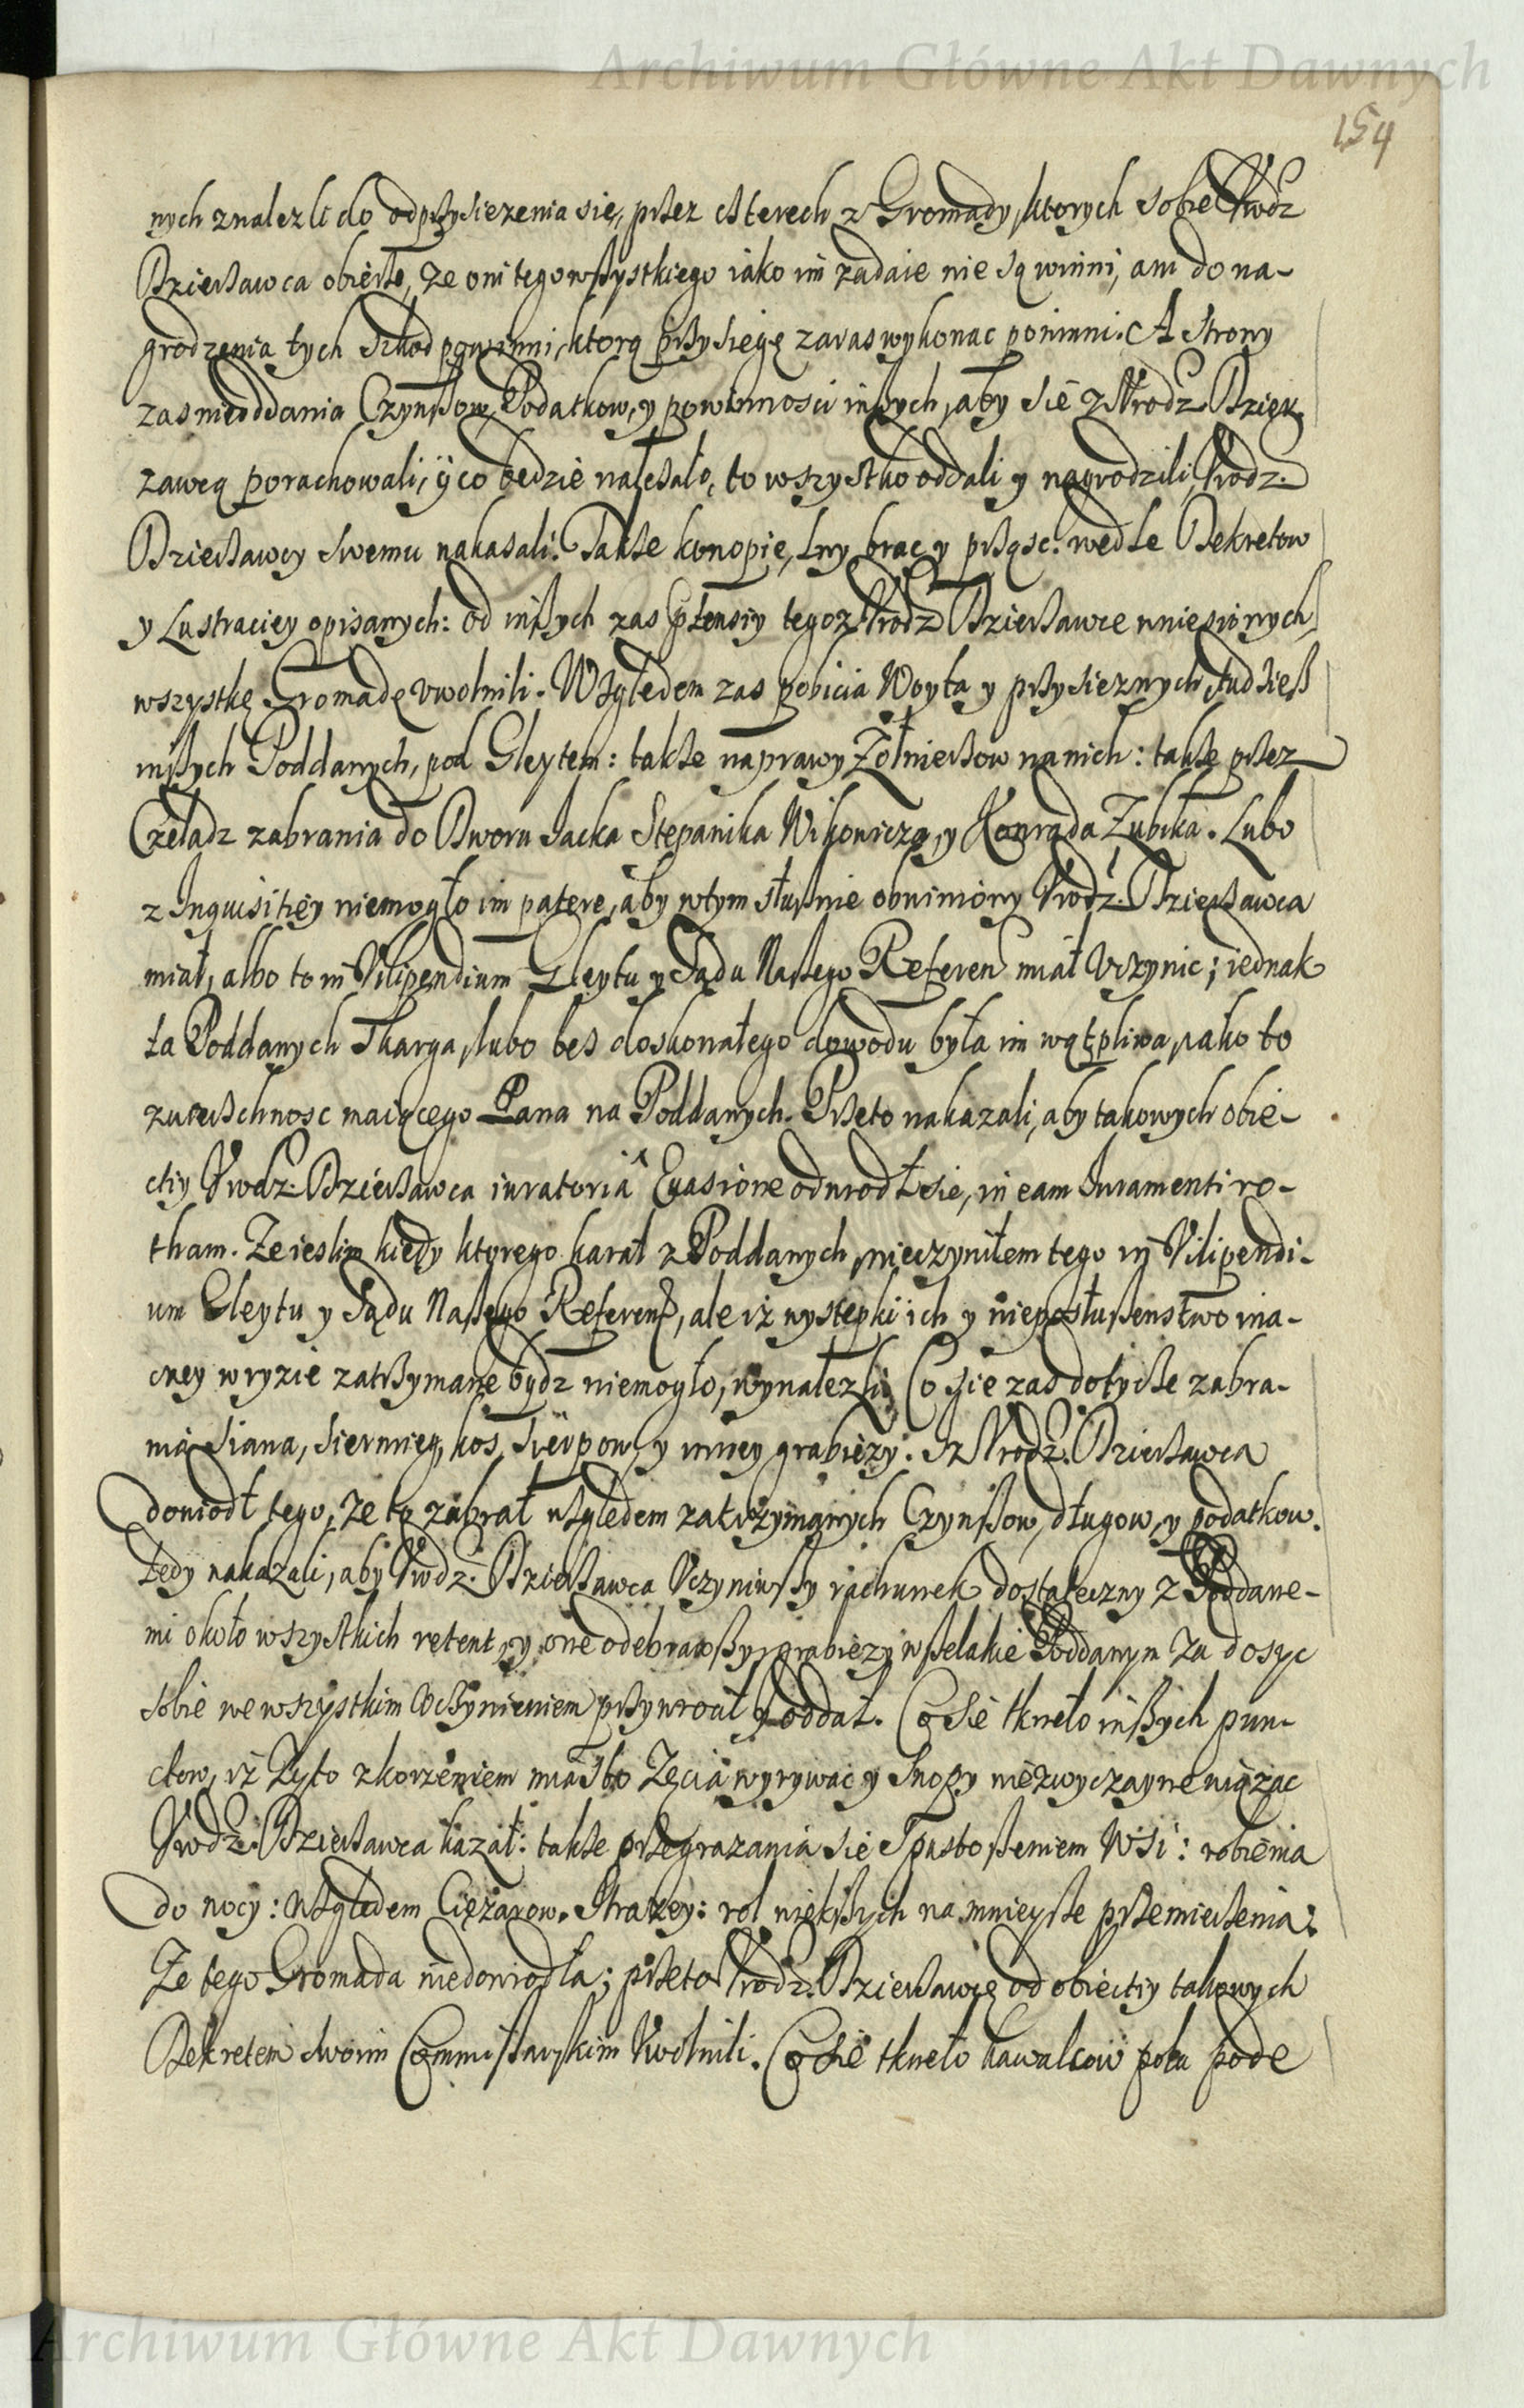 Archiwum Główne Akt Dawnych
154
nych znalezli do odprzysiezenia się, przez czterech z Gromady, ktorych sobie Vrodz
Dzierzawca obierze, ze oni tego wszystkiego iako im zadaie nie są winni, ani do na-
grodzenia tych szkod powinni, ktorą przysięgę zaraz wykonac powinni. A strony
zas nieoddania Czynszow, Podatkow, y powinnosci inszych, aby się z Vrodz. Dzier-
zawcą porachowali, y co będzie nalezało, to wszystko oddali y nagrodzili, Vrodz.
Dzierzawcy swemu nakazali. Takze konopie, lny brac y prząsc wedle Dekretow
y Lustraciey opisanych: od inszych zas ptensiy tegoz Vrodz Dzierzawce wniesionych
wszystkę Gromadę vwolnili. Względem zas pobicia Woyta y przysieznych, tudziesz
inszych Poddanych, pod Gleytem: takze naprawy Zołnierzow na nich: takze przez
Czeladz zabrania do Dworu Jacka Stepanika Wikowicza, y Konrada Zubika. Lubo
z Inquisitiey niemogło im patere, aby w tym słusznie obwiniony Vrodz. Dzierzawca
miał, albo to in Vilipendium Gleytu y Sądu Naszego Referen miał Vczynic; iednak
ta Poddanych Skarga, lubo bez doskonałego dowodu była im wątpliwa, iako to
zwierzchnosc maiącego Pana na Poddanych. Przeto nakazali, aby takowych obie-
ctiy Vrodz. Dzierzawca iuratoriâ Euasione odwrodł sie, in eam Iuramenti ro-
tham. Ze ieslim kiedy ktorego karał z Poddanych, nieczyniłem tego in Vilipendi-
um Gleytu y Sądu Naszego Referen, ale iz wystepki ich y nieposłuszenstwo ina-
czey w ryzie zatrzymane bydz niemogło, wynalezli. Co sie zas dotycze zabra-
nia Siana, siermieg, kos, sierpow, y inney grabiezy: Iz Vrodz. Dzierzawca
dowiodł tego, ze to zabrał względem zatrzymanych Czynszow, długow, y podatkow.
tedy nakazali, aby Vrodz. Dzierzawca Vczyniwszy rachunek dostateczny z Poddane-
mi około wszystkich retent, y one odebrawszy, grabiezy wszelakie Poddanym za dosyc
sobie we wszystkim Vczynieniem przywrocił y oddał. Co sie tkneło inszych pun-
ctow, iz Zyto z korzeniem miasto Zęcia wyrywac y snopy niezwyczayne wiązac
Vrodz. Dzierzawca kazał: takze przegrazania sie Spustoszeniem Wsi: robienia
do nocy: względem Cięzarow. Strazey: rol większych na mnieysze przemierzenia:
Ze tego Gromada niedowiodła; przeto Vrodz. Dzierzawcę od obiectiy takowych
Dekretem swoim Commissarskim Vwolnili. Co sie tkneło kawalcow pola pode
Archiwum Główne Akt Dawnych